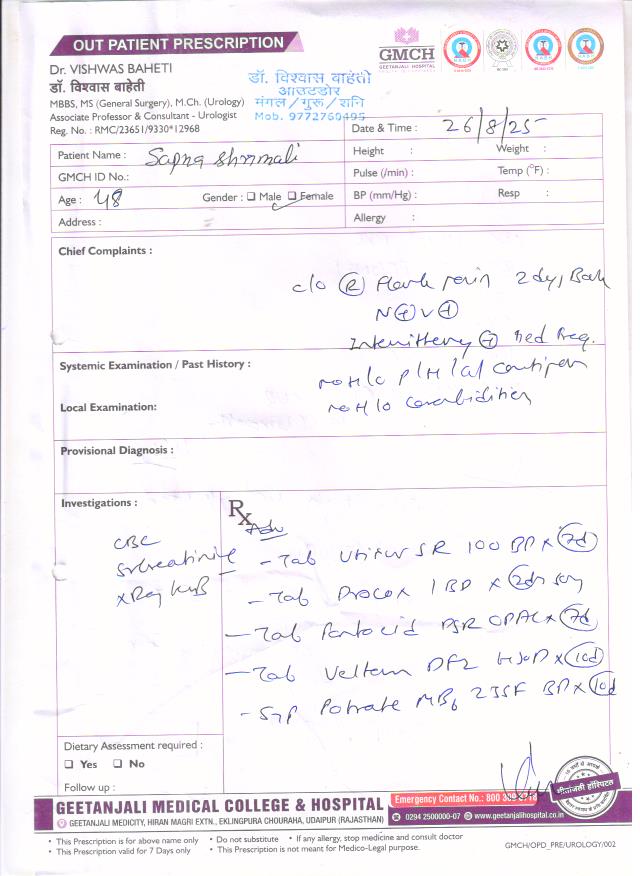 OUT PATIENT PRESCRIPTION
GMCH
GEETANJALI HOSPITAL
Dr. VISHWAS BAHETI
डॉ. विश्वास बाहेती
MBBS, MS (General Surgery), M.Ch. (Urology)
Associate Professor & Consultant - Urologist
Reg. No. : RMC/23651/9330*12968
डॉ. विश्वास बाहेती
आउटडोर
मंगल/गुरू/शनि
Mob. 9772760495
Date & Time : 26/8/25
Patient Name : Sapna Shrimali
Height : Weight :
GMCH ID No.:
Pulse (/min) : Temp (°F) :
Age : 48 Gender : ☐ Male ☐ Female
BP (mm/Hg) : Resp :
Address :
Allergy :
Chief Complaints :
c/o (R) Flank pain 2 day, Back
N(+) V(+)
Intermittency (+) Red
Systemic Examination / Past History :
no H/o
Local Examination:
no H/o Comorbidities
Provisional Diagnosis :
Investigations :
Rx
Adv
CBC
Sr Creatinine
X Ray KUB
- Tab SR 100 BD x 7d
- Tab 1 BD x 2d
- Tab Pantocid DSR OD x 7d
- Tab Veltam x 10d
- Syp Potrate MB6 2TSF BD x 10d
Dietary Assessment required :
☐ Yes ☐ No
Follow up :
गीतांजली हॉस्पिटल
GEETANJALI MEDICAL COLLEGE & HOSPITAL
Emergency Contact No.: 800
GEETANJALI MEDICITY, HIRAN MAGRI EXTN., EKLINGPURA CHOURAHA, UDAIPUR (RAJASTHAN)
0294 2500000-07 www.geetanjalihospital.co.in
• This Prescription is for above name only • Do not substitute • If any allergy, stop medicine and consult doctor
• This Prescription valid for 7 Days only • This Prescription is not meant for Medico-Legal purpose.
GMCH/OPD_PRE/UROLOGY/002